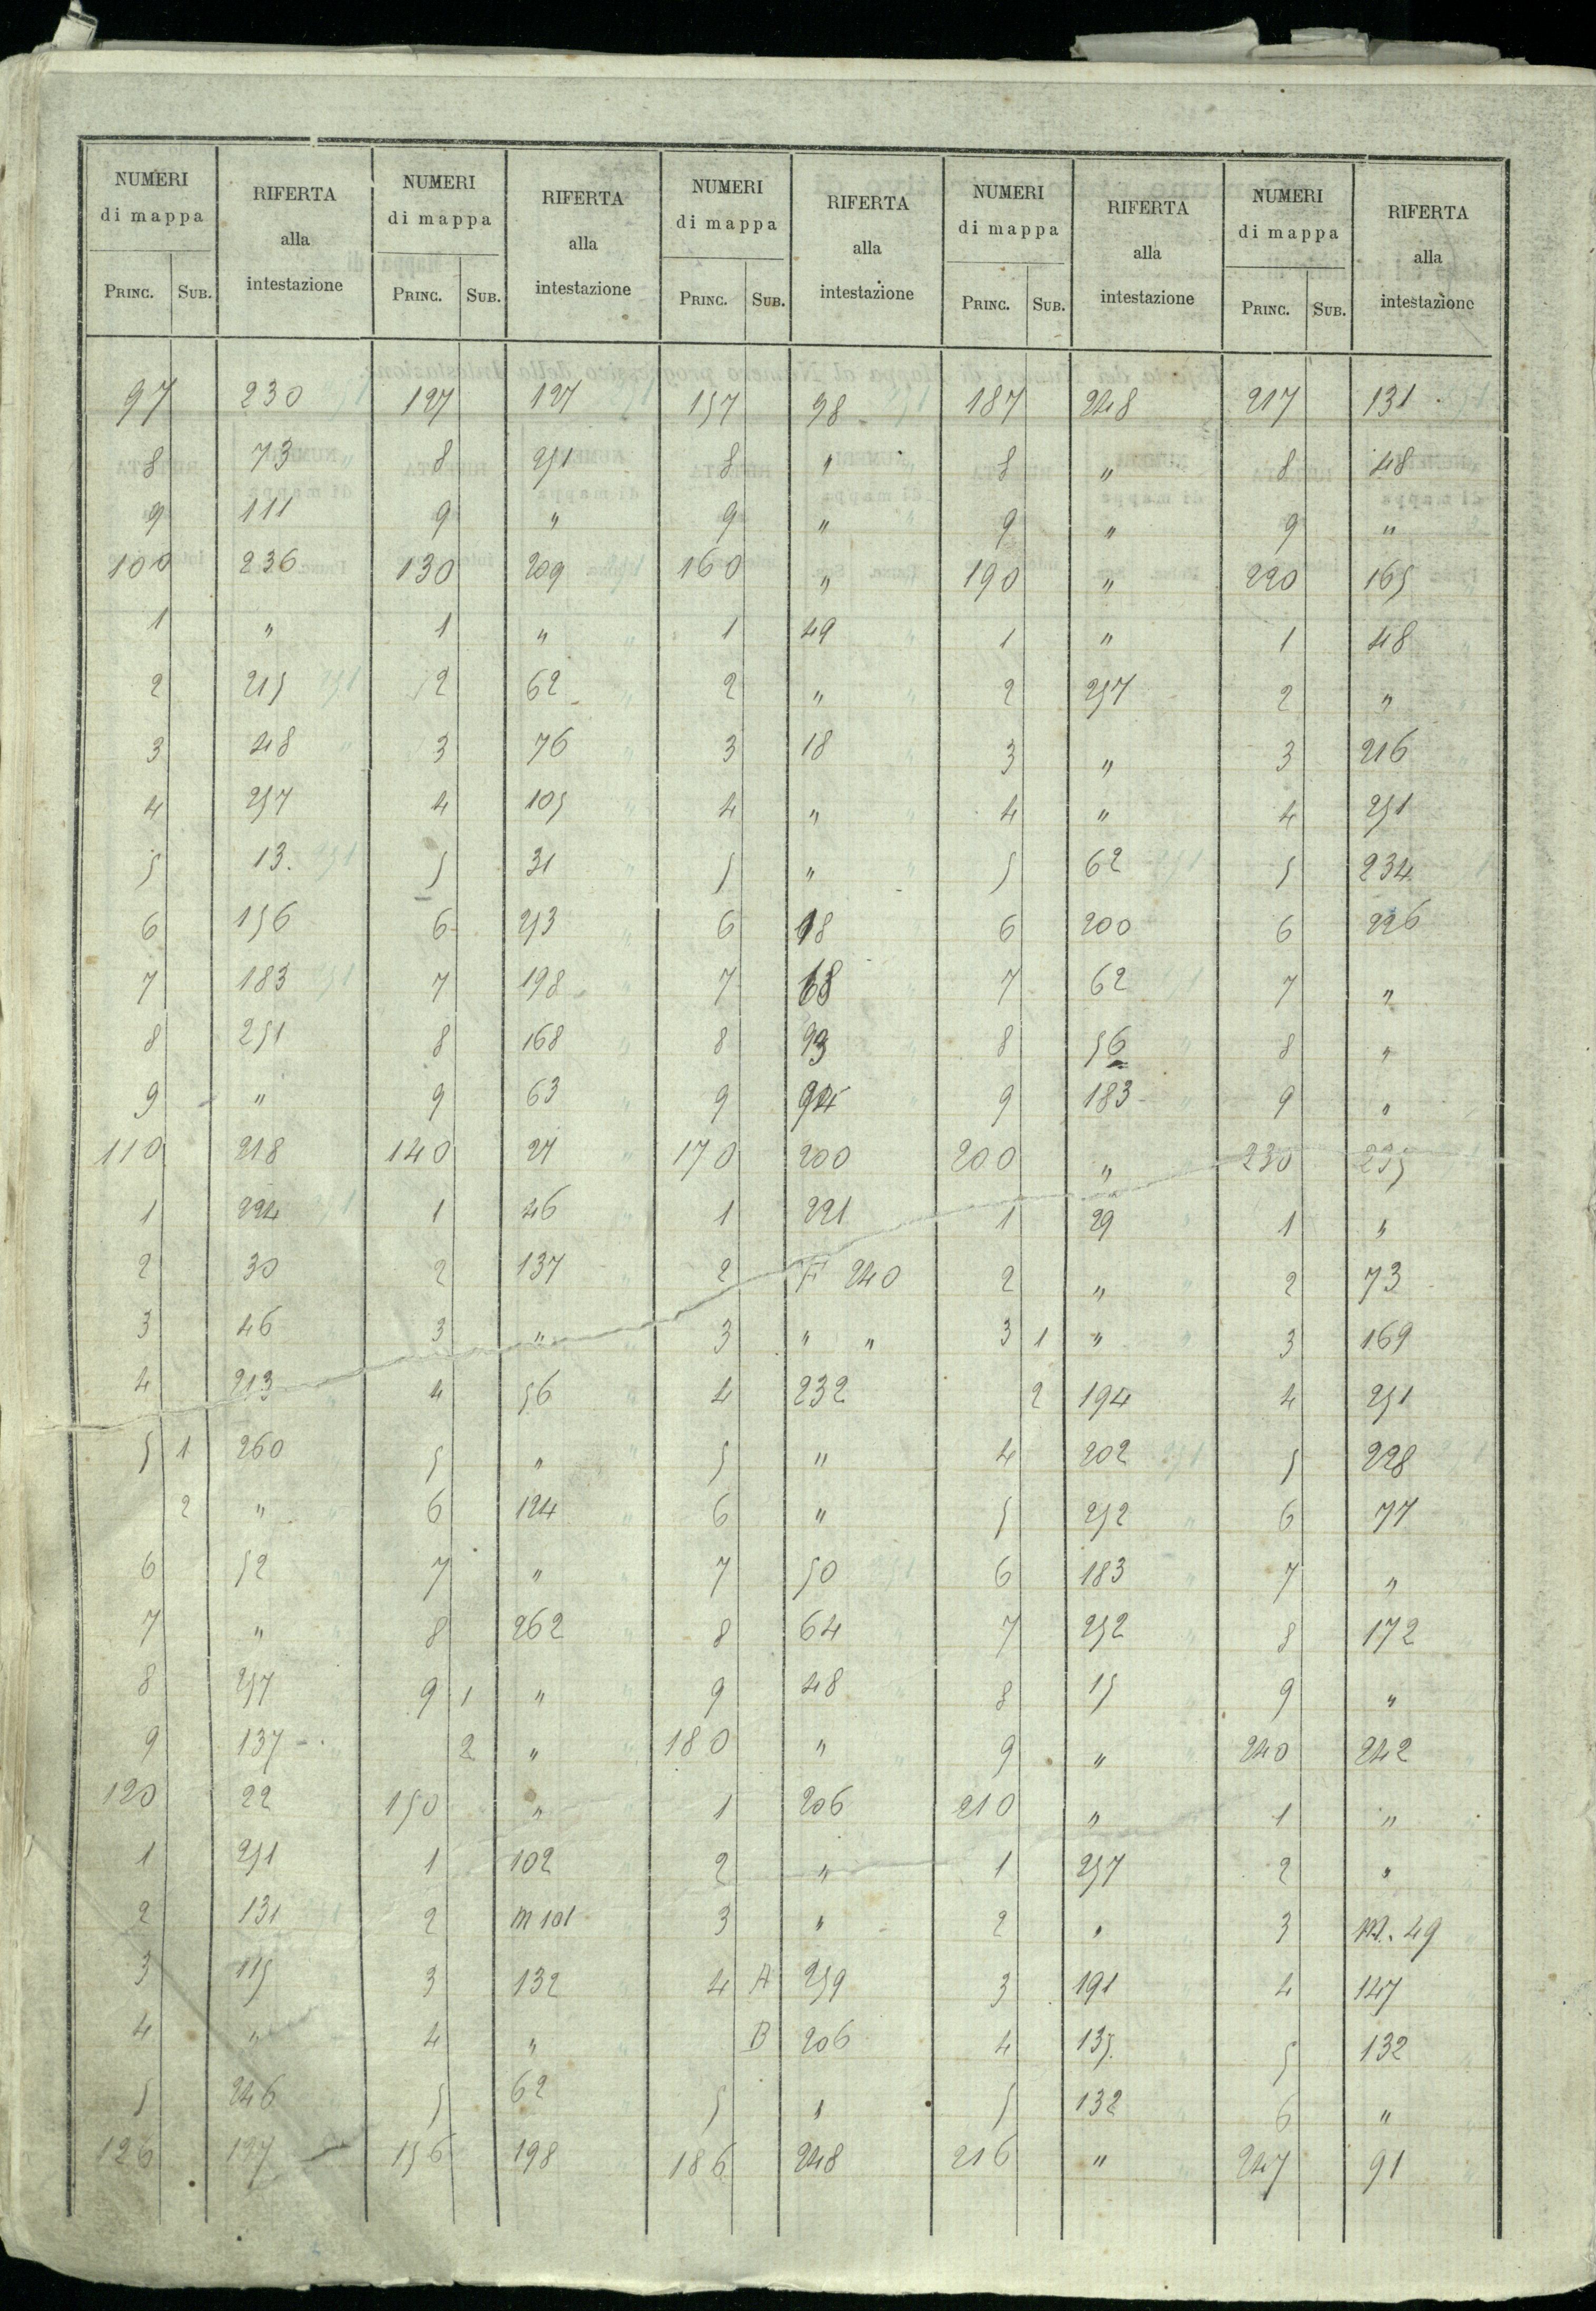 NUMERI di mappa | RIFERTA alla intestazione | NUMERI di mappa | RIFERTA alla intestazione | NUMERI di mappa | RIFERTA alla intestazione | NUMERI di mappa | RIFERTA alla intestazione | NUMERI di mappa | RIFERTA alla intestazione
PRINC. | SUB. | PRINC. | SUB. | PRINC. | SUB. | PRINC. | SUB. | PRINC. | SUB.
97 | 230 | 127 | 127 | 157 | 98 | 187 | 248 | 217 | 131
8 | 73 | 8 | 251 | 8 | " | 8 | " | 8 | 48
9 | 111 | 9 | " | 9 | " | 9 | " | 9 | "
100 | 236 | 130 | 209 | 160 | " | 190 | " | 220 | 165
1 | " | 1 | " | 1 | 49 | 1 | " | 1 | 48
2 | 215 | 2 | 62 | 2 | " | 2 | 257 | 2 | "
3 | 48 | 3 | 76 | 3 | 18 | 3 | " | 3 | 216
4 | 257 | 4 | 105 | 4 | " | 4 | " | 4 | 251
5 | 13. | 5 | 31 | 5 | " | 5 | 62 | 5 | 234
6 | 156 | 6 | 253 | 6 | 18 | 6 | 200 | 6 | 226
7 | 183 | 7 | 198 | 7 | 68 | 7 | 62 | 7 | "
8 | 251 | 8 | 168 | 8 | 93 | 8 | 56 | 8 | "
9 | " | 9 | 63 | 9 | 94 | 9 | 183 | 9 | "
110 | 218 | 140 | 27 | 170 | 200 | 200 | " | 230 | 255
1 | 224 | 1 | 46 | 1 | 221 | 1 | 29 | 1 | "
2 | 30 | 2 | 137 | 2 | F 240 | 2 | " | 2 | 73
3 | 46 | 3 | " | 3 | " " | 3 1 | " | 3 | 169
4 | 213 | 4 | 56 | 4 | 232 | 2 | 194 | 4 | 251
5 1 | 260 | 5 | " | 5 | " | 4 | 202 | 5 | 228
2 | " | 6 | 124 | 6 | " | 5 | 252 | 6 | 77
6 | 52 | 7 | " | 7 | 50 | 6 | 183 | 7 | "
7 | " | 8 | 262 | 8 | 64 | 7 | 252 | 8 | 172
8 | 257 | 9 1 | " | 9 | 48 | 8 | 15 | 9 | "
9 | 137 | 2 | " | 180 | " | 9 | " | 240 | 242
120 | 22 | 150 | " | 1 | 206 | 210 | " | 1 | "
1 | 251 | 1 | 102 | 2 | " | 1 | 257 | 2 | "
2 | 131 | 2 | M 101 | 3 | " | 2 | " | 3 | M. 49
3 | 115 | 3 | 132 | 4 A | 259 | 3 | 191 | 4 | 147
4 | " | 4 | " | B | 206 | 4 | 135. | 5 | 132
5 | 246 | 5 | 62 | 5 | " | 5 | 132 | 6 | "
126 | 127 | 156 | 198 | 186 | 248 | 216 | " | 247 | 91